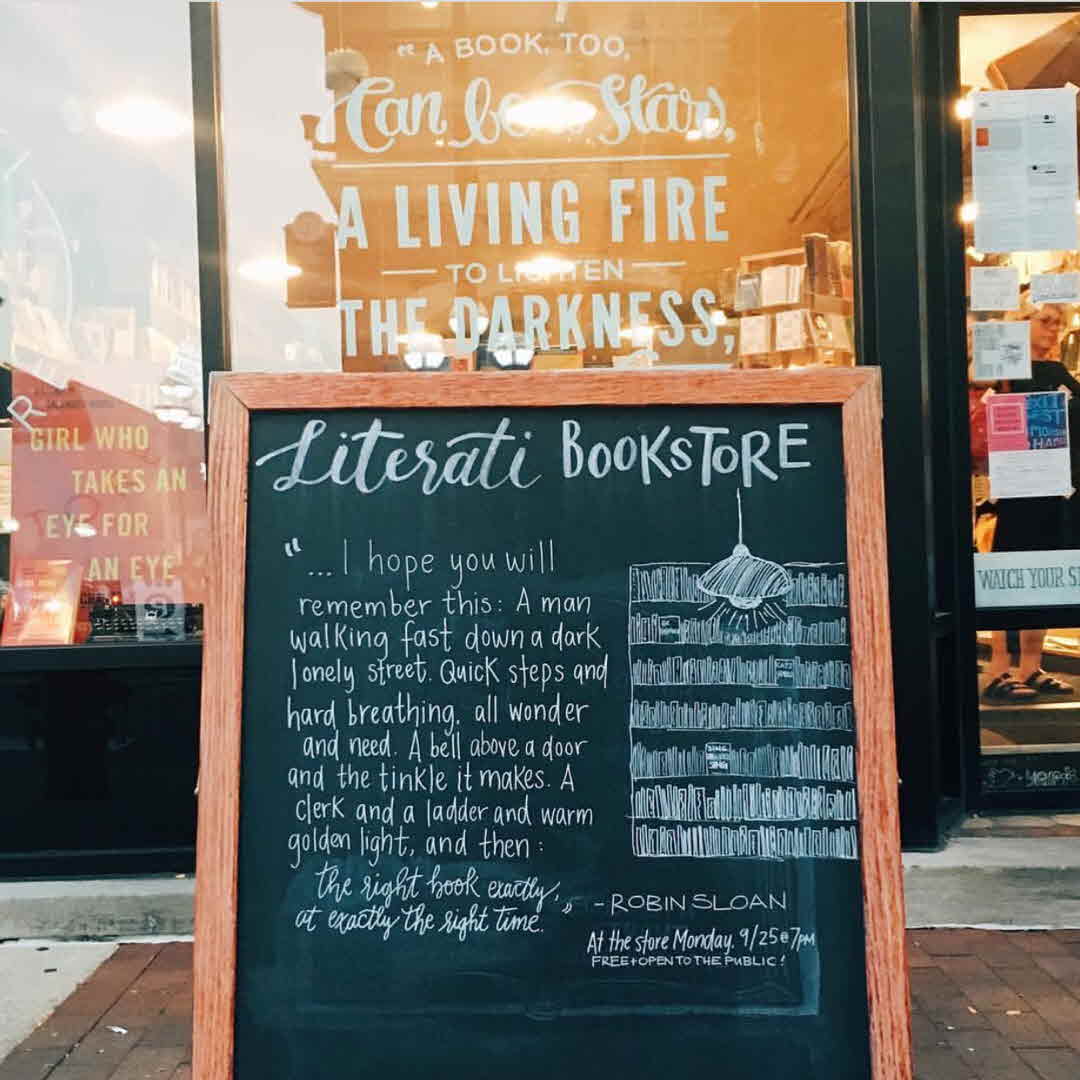 “A BOOK, TOO,
Can be a Star,
A LIVING FIRE
TO LIGHTEN
THE DARKNESS,
GIRL WHO
TAKES AN
EYE FOR
AN EYE
WATCH YOUR
Literati BOOKSTORE
“...I hope you will
remember this: A man
walking fast down a dark
lonely street. Quick steps and
hard breathing, all wonder
and need. A bell above a door
and the tinkle it makes. A
clerk and a ladder and warm
golden light, and then:
the right book exactly,
at exactly the right time.”
- ROBIN SLOAN
At the store Monday, 9/25 @ 7PM
FREE + OPEN TO THE PUBLIC!